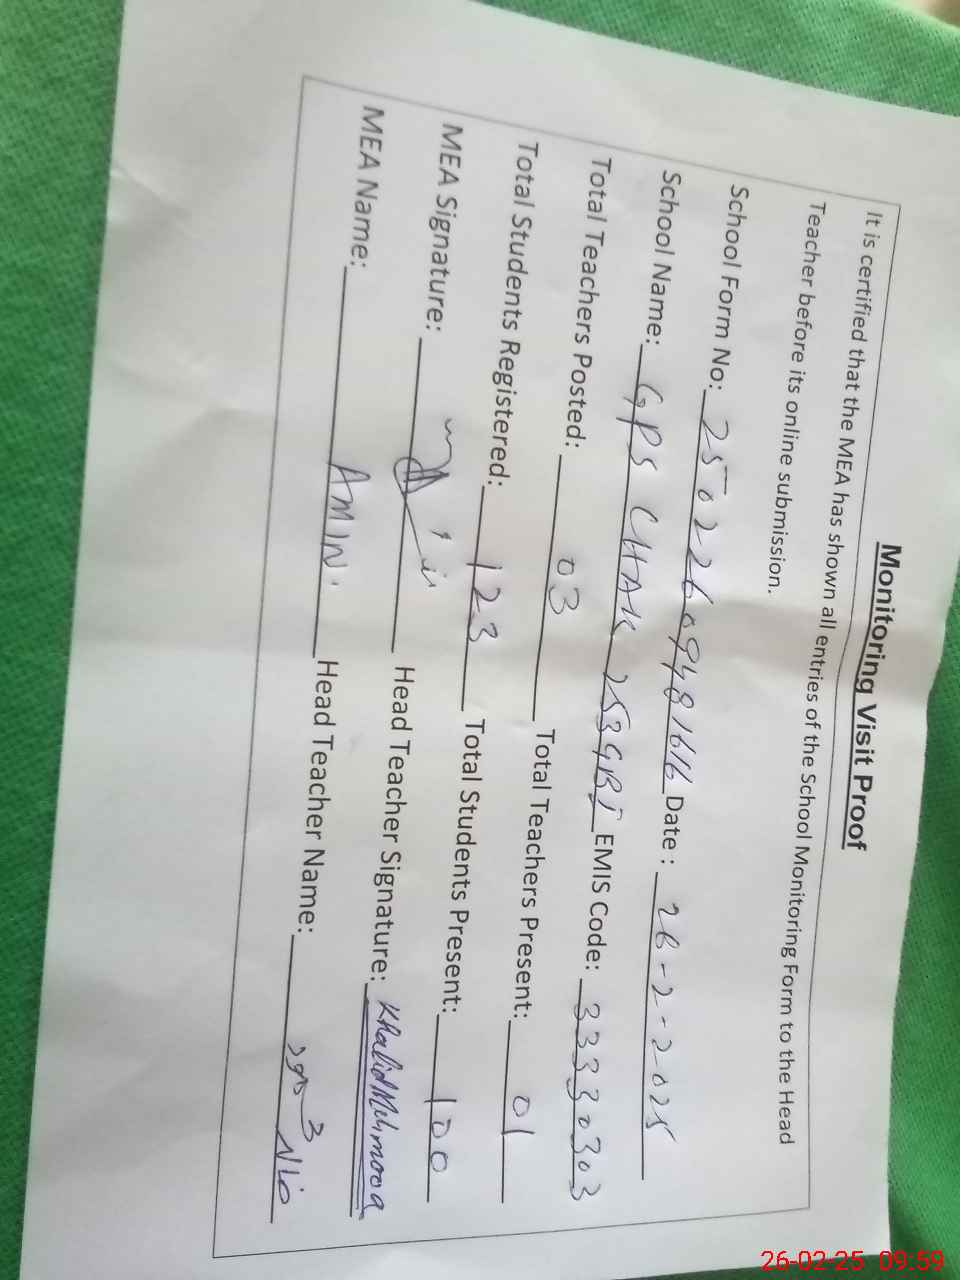 Monitoring Visit Proof
It is certified that the MEA has shown all entries of the School Monitoring Form to the Head
Teacher before its online submission.
School Form No: 25022609481616 Date : 26-2-2025
School Name: GPS CHAK 253GBI EMIS Code: 33330303
Total Teachers Posted: 03 Total Teachers Present: 01
Total Students Registered: 123 Total Students Present: 100
MEA Signature: Head Teacher Signature: Khalid Mehmood
MEA Name: AMIN. Head Teacher Name:
26-02-25 09:59